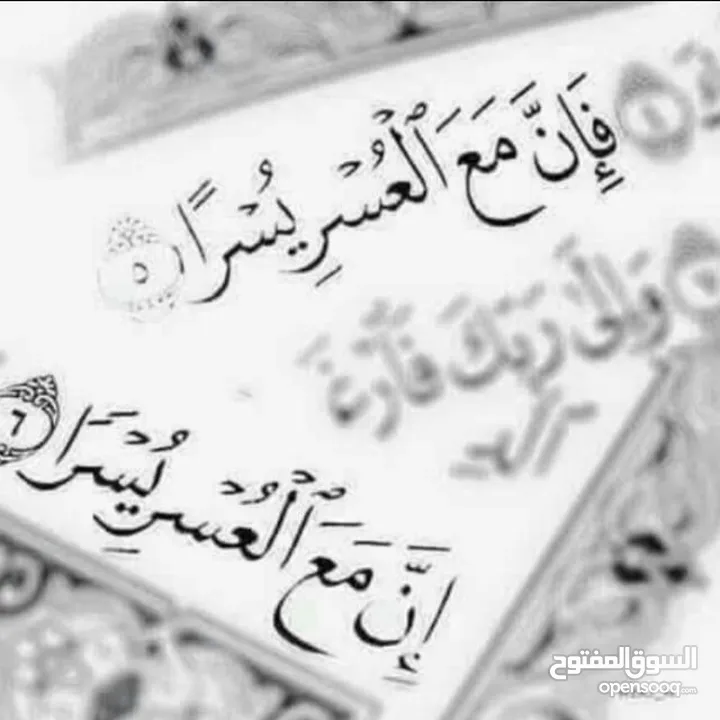 فَإِنَّ مَعَ ٱلْعُسْرِ يُسْرًا ٥
وَإِلَىٰ رَبِّكَ فَٱرْغَب
إِنَّ مَعَ ٱلْعُسْرِ يُسْرًا ٦
السوق المفتوح
opensooq.com